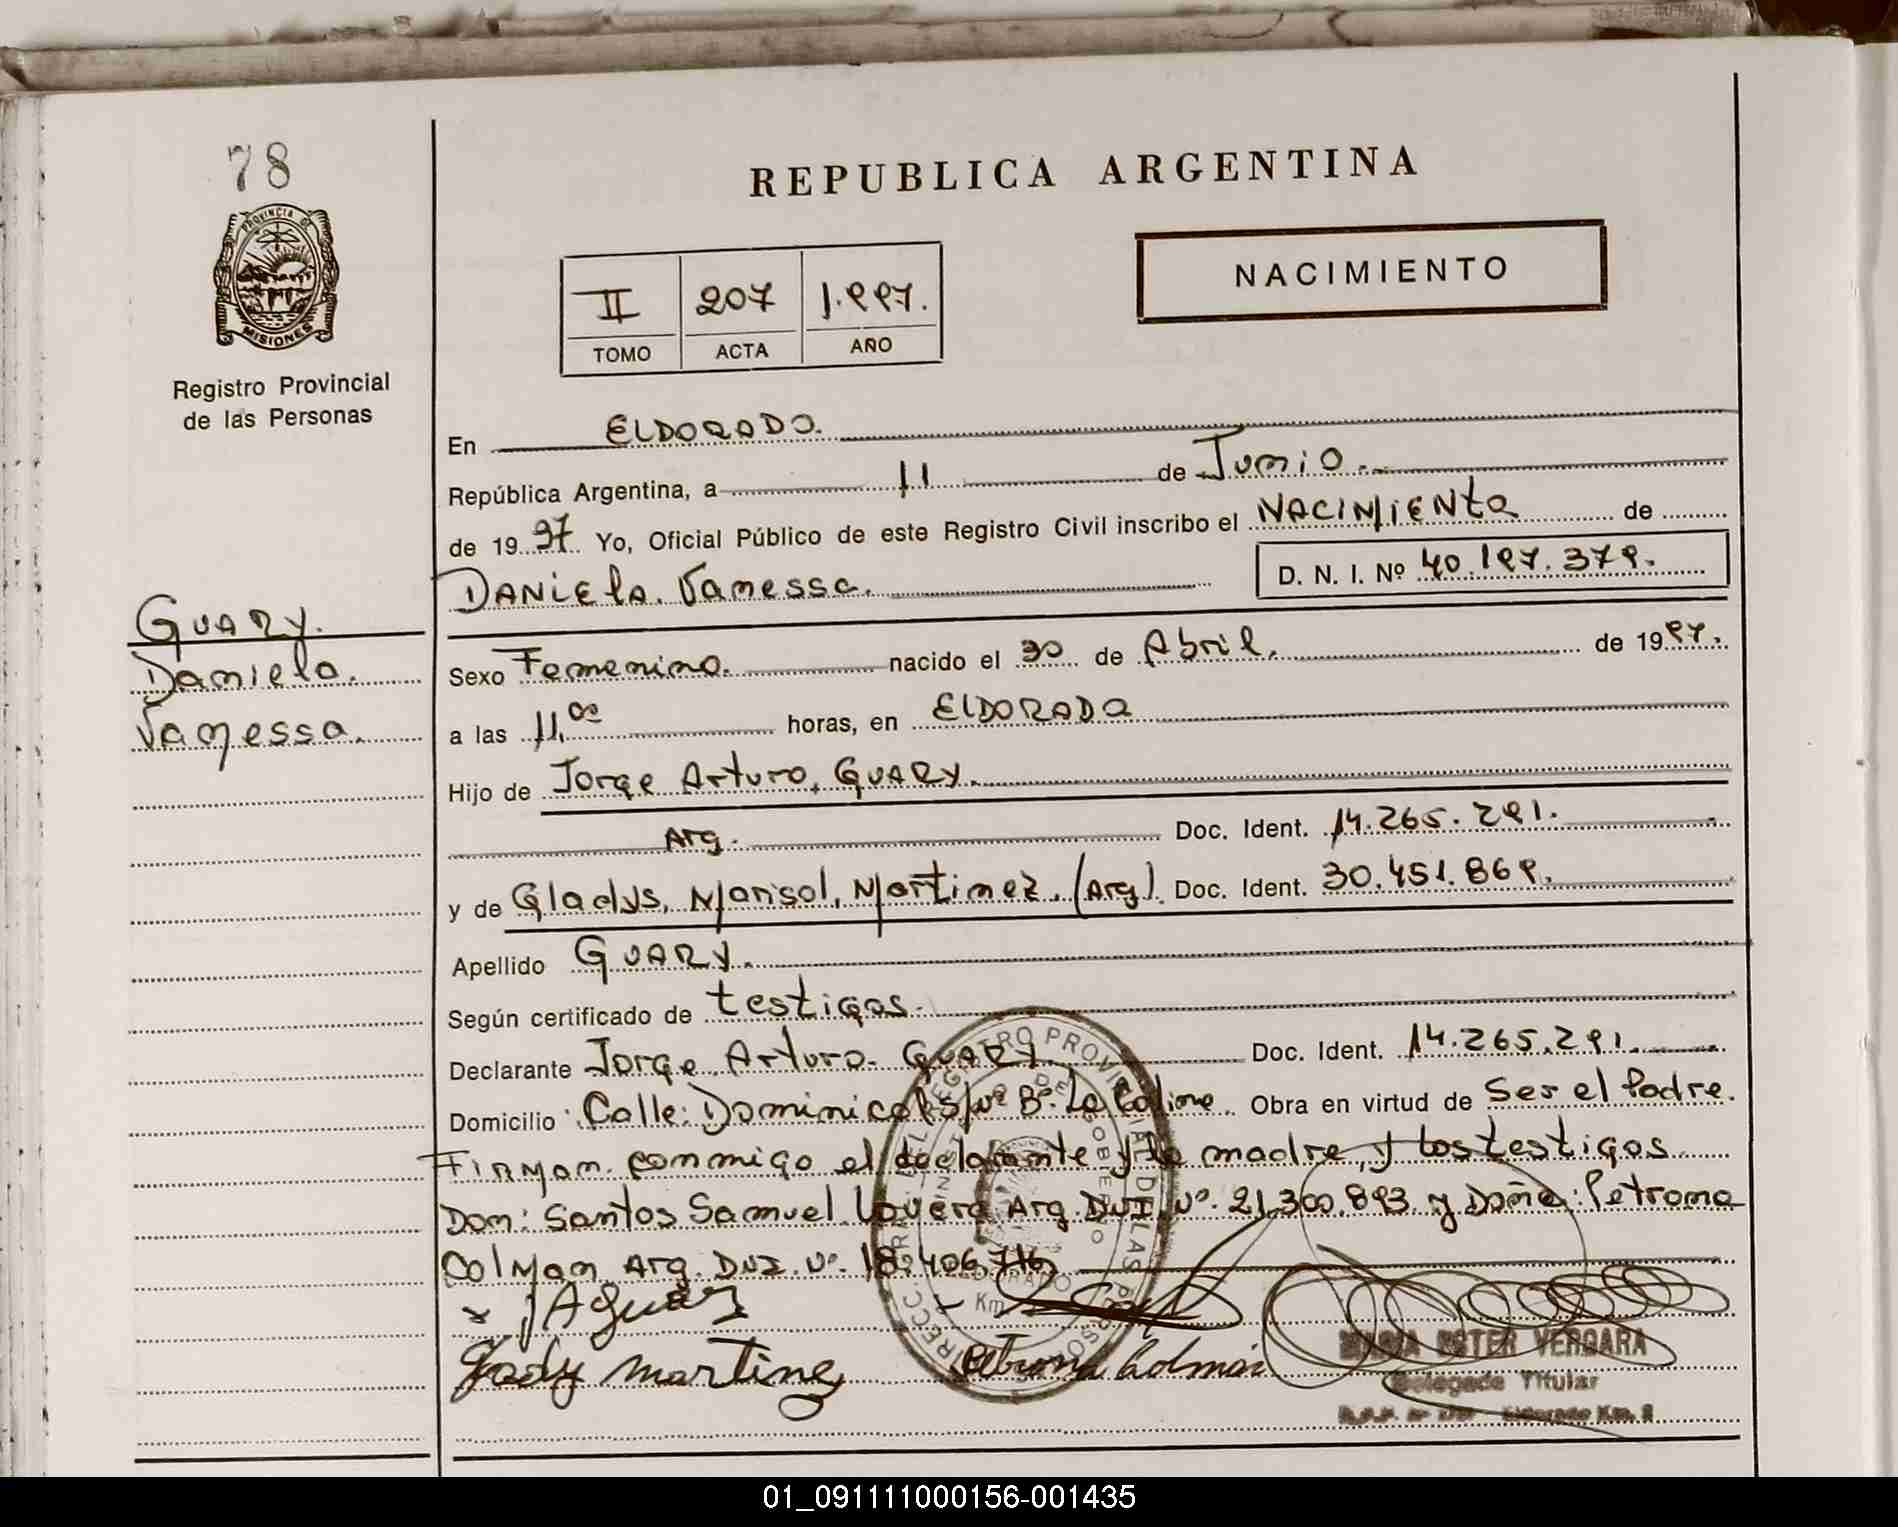 78
PROVINCIA DE
MISIONES
Registro Provincial
de las Personas
REPUBLICA ARGENTINA
NACIMIENTO
II 207 1.997.
TOMO ACTA AÑO
En ELDORADO.
República Argentina, a 11 de Junio.
de 19 97 Yo, Oficial Público de este Registro Civil inscribo el NACIMIENTO de
DANIELA. Vanessa. D. N. I. Nº 40.197.379.
Guary.
Daniela.
Vanessa.
Sexo Femenino. nacido el 30 de Abril. de 19 97.
a las 11,00 horas, en ELDORADO
Hijo de Jorge Arturo, GUARY.
Arg. Doc. Ident. 14.265.291.
y de Gladys, Marisol, Martinez. (Arg). Doc. Ident. 30.451.869.
Apellido GUARY.
Según certificado de testigos.
Declarante Jorge. Arturo. GUARY. Doc. Ident. 14.265.291.
Domicilio Calle: S/Nº Bº. La Colina. Obra en virtud de Ser el Padre.
Firman conmigo el declarante y la madre, y los testigos
Don: Santos Samuel Lovera Arg. DNI. Nº. 21.300.893 y Doña: Petrona
Colman Arg. DNI. Nº. 18.406.716
x JAGuary
Glady Martinez Petrona Colman
MARIA ESTER VERGARA
Delegada Titular
Eldorado Km. 2
01_091111000156-001435